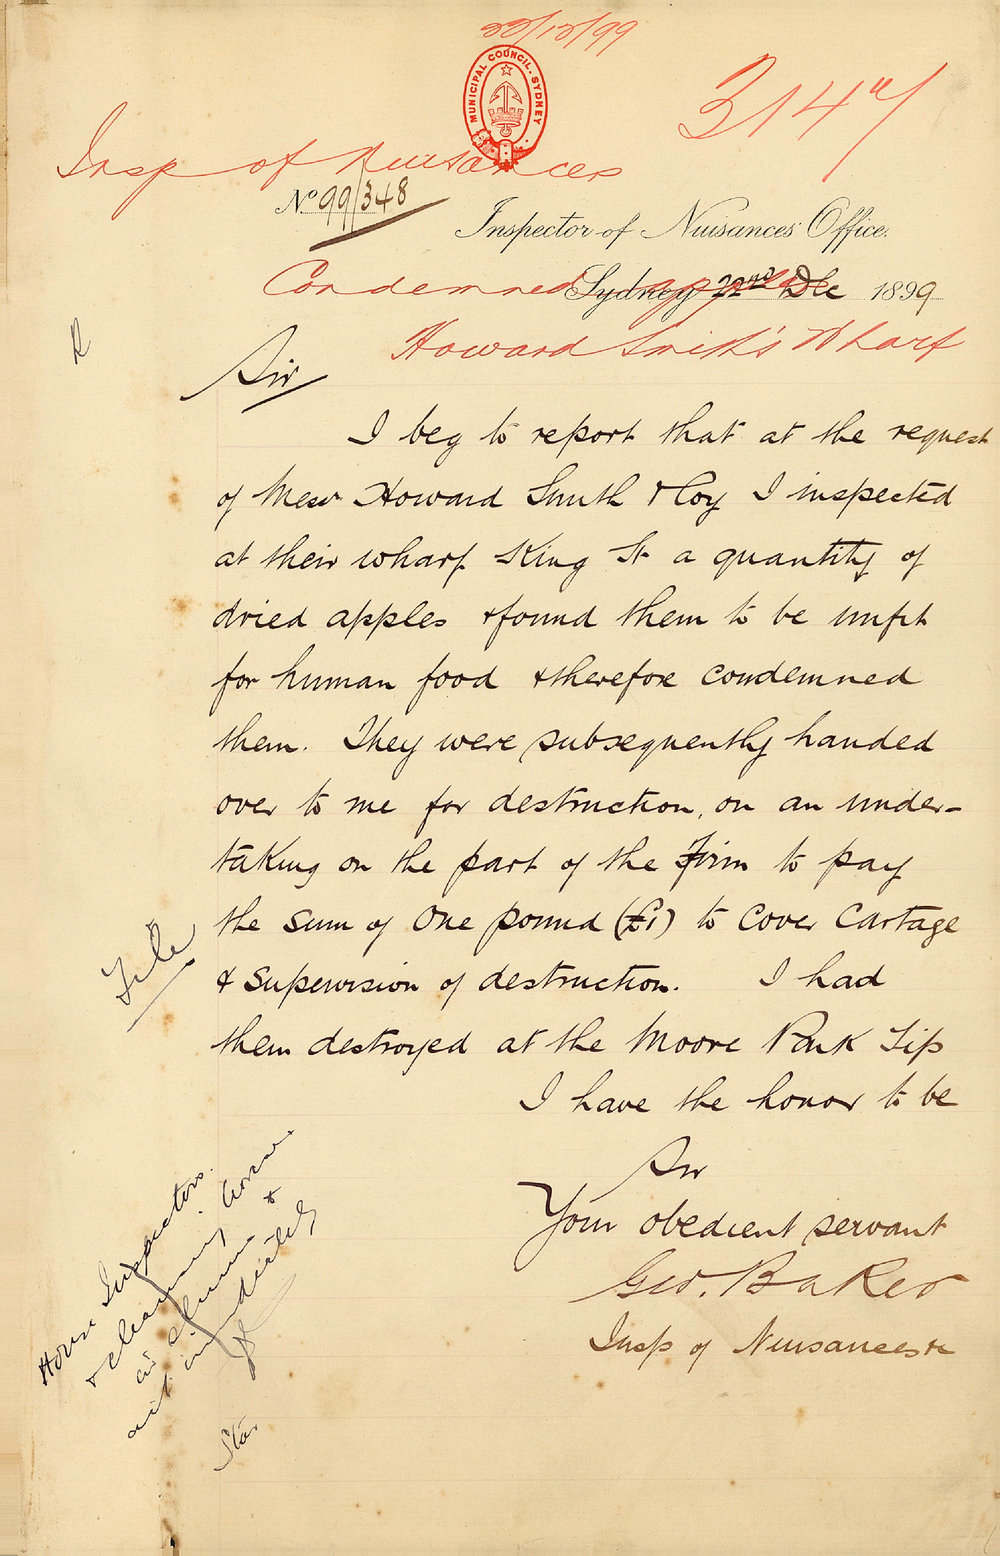 22/12/99
MUNICIPAL COUNCIL. SYDNEY
3147
Insp of Nuisances
No 99/348
Inspector of Nuisances' Office.
Sydney 22nd Dec 1899
Condemned apples
Howard Smith's Wharf
Sir
I beg to report that at the request
of Mess Howard Smith & Coy I inspected
at their wharf King St a quantity of
dried apples & found them to be unfit
for human food & therefore condemned
them. They were subsequently handed
over to me for destruction, on an under-
taking on the part of the Firm to pay
the sum of One pound (£1) to Cover Cartage
& Supervision of destruction. I had
them destroyed at the Moore Park Tip
I have the honor to be
Sir
Your obedient servant
Geo. Baker
Insp of Nuisances &c
File